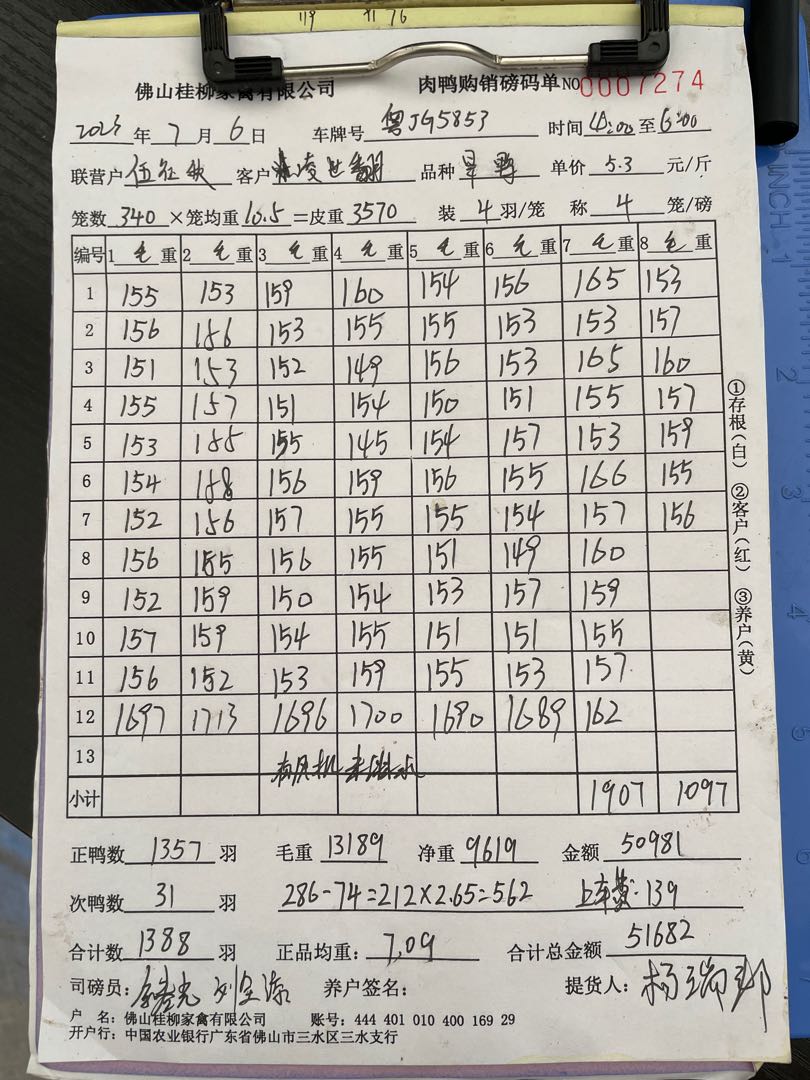 119 76
佛山桂柳家禽有限公司 肉鸭购销磅码单 NO 0007274
2023 年 7 月 6 日 车牌号 粤JG5853 时间 4:00 至 6:00
联营户 伍 客户 凌世 品种 旱鸭 单价 5.3 元/斤
笼数 340 ×笼均重 10.5 =皮重 3570 装 4 羽/笼 称 4 笼/磅
编号 1 毛 重 2 毛 重 3 毛 重 4 毛 重 5 毛 重 6 毛 重 7 毛 重 8 毛 重
1 155 153 159 160 154 156 165 153
2 156 156 153 155 155 153 153 157
3 151 153 152 149 156 153 165 160
4 155 157 151 154 150 151 155 157
5 153 155 155 145 154 157 153 159
6 154 158 156 159 156 155 166 155
7 152 156 157 155 155 154 157 156
8 156 155 156 155 151 149 160
9 152 159 150 154 153 157 159
10 157 159 154 155 151 151 155
11 156 152 153 159 155 153 157
12 1697 1713 1696 1700 1690 1689 162
13 有风机 未 水
小计 1907 1097
正鸭数 1357 羽 毛重 13189 净重 9619 金额 50981
次鸭数 31 羽 286-74=212×2.65=562 上车费:139
合计数 1388 羽 正品均重: 7.09 合计总金额 51682
司磅员: 刘 养户签名: 提货人: 杨
户 名: 佛山桂柳家禽有限公司 账号: 444 401 010 400 169 29
开户行: 中国农业银行广东省佛山市三水区三水支行
①存根(白) ②客户(红) ③养户(黄)
INCH 1